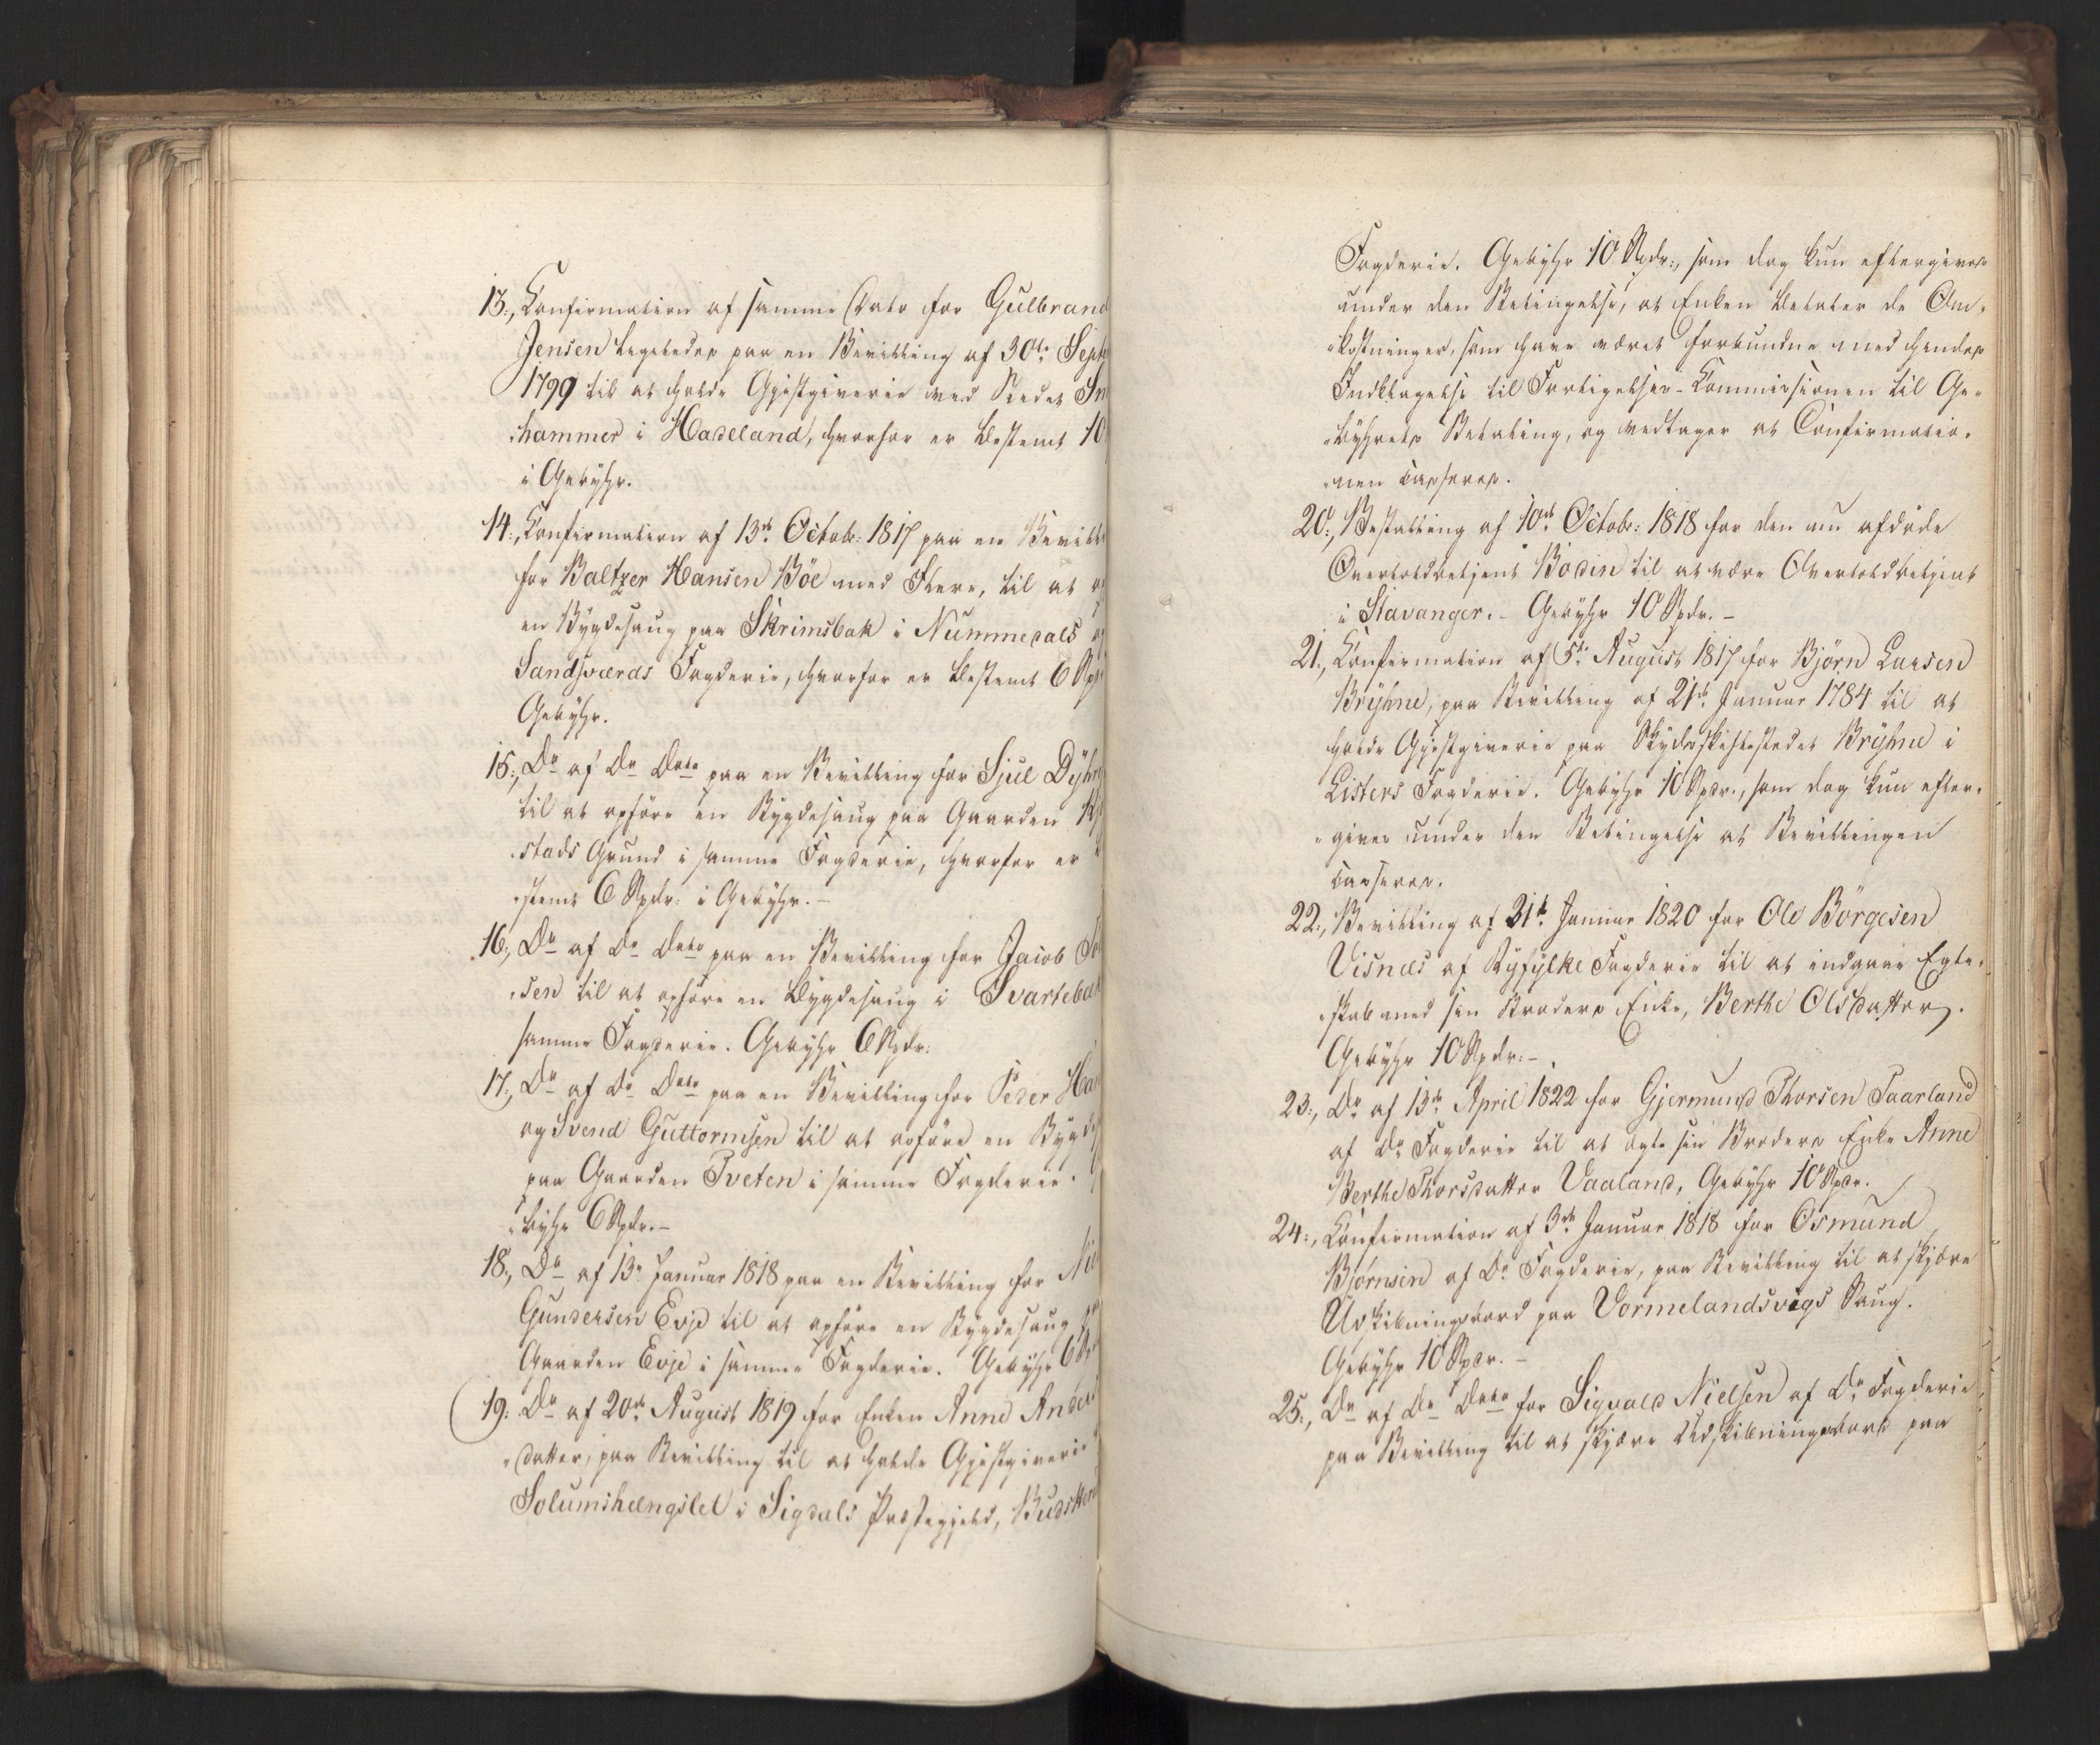 13., Confirmation af samme Dato for Gulbrand
Jensen ligeledes paa en Bevilling af 30te Sept
1799 til at holde Gjestgiverie ved Stedet
-hammer i Hadeland, hvorfor er bestemt 10
i Gebyhr.
14., Confirmation af 13de Octob: 1817 paa en Bevill
for Baltzer Hansen Böe med Flere, til at
en Bygdesaug paa Skrimsbak i Nummedals og
Sandsværds Fogderie, hvorfor er bestemt 6 Spd
Gebyhr.
15., Do af Do Dato paa en Bevilling for Sjul Dyhre
til at opföre en Bygdesaug paa Gaarden
-stads Grund i samme Fogderie, hvorfor er
-stemt 6 Spdr: i Gebyhr.-
16., Do af Do Dato paa en Bevilling for Jacob
-sen til at opföre en Bygdesaug i Svartebak
samme Fogderie. Gebyhr 6 Spdr:
17., Do af Do Dato paa en Bevilling for Peder Han
og Svend Guttormsen til at opföre en Bygdes
paa Gaarden Tveten i samme Fogderie.
-byhr 6 Spdr.-
18., Do af 13de Januar 1818 paa en Bevilling for Nie
Gundersen Evje til at opföre en Bygdesaug
Gaarden Evje i samme Fogderie. Gebyhr 6 Spd
19: Do af 20de August 1819 for Enken Anne Anders
-datter, paa Bevilling til at holde Gjestgiverie
Solumshængslet i Sigdals Præstegjeld, Budsk
Fogderie. Gebyhr 10 Spdr:, som dog kun eftergives
under den Betingelse, at Enken betaler de Om-
-kostninger, som have været forbundne med hendes
Indklagelse til Forligelses-Commissionen til Ge-
-byhrets Betaling, og vedtager at Confirmatio-
-nen casseres.
20., Bestalling af 10de Octobr: 1818 for den nu afdöde
Overtoldbetjent Bodin til at være Overtoldbetjent
i Stavanger.- Gebyhr 10 Spdr.-
21., Confirmation af 5te August 1817 for Björn Larsen
Bryhne, paa Bevilling af 21de Januar 1784 til at
holde Gjestgiverie paa Skydsskiftestedet Bryhne i
Listers Fogderie. Gebyhr 10 Spdr., som dog kun efter-
-gives under den Betingelse at Bevillingen
casseres.
22., Bevilling af 31te Januar 1820 for Ole Börgesen
Visnæs af Ryfylke Fogderie til at indgaae Egte-
-skab med sin Broders Enke, Berthe Olsdatter.
Gebyhr 10 Spdr:-
23., Do af 13de April 1822 for Gjermund Thorsen Taarland
af Do Fogderie til at ægte sin Broders Enke Anne
Berthe Thorsdatter Vaaland, Gebyhr 10 Spdr.
24., Confirmation af 3de Januar 1818 for Osmund
Björnsen af Do Fogderie, paa Bevilling til at skjære
Udskibningsbord paa Vormelandsvigs Saug.
Gebyhr 10 Spdr.-
25., Do af Do Dato for Sigvald Nielsen af Do Fogderie
paa Bevilling til at skjære Udskibningsbord paa